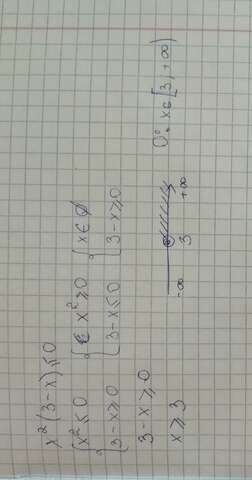 x²(3-x)≤0
{x²≤0 {x²≥0 {x∈∅
{3-x≥0 {3-x≤0 {3-x≥0
3-x≥0
x≥3
-∞ 3 +∞
О: x∈[3;+∞)